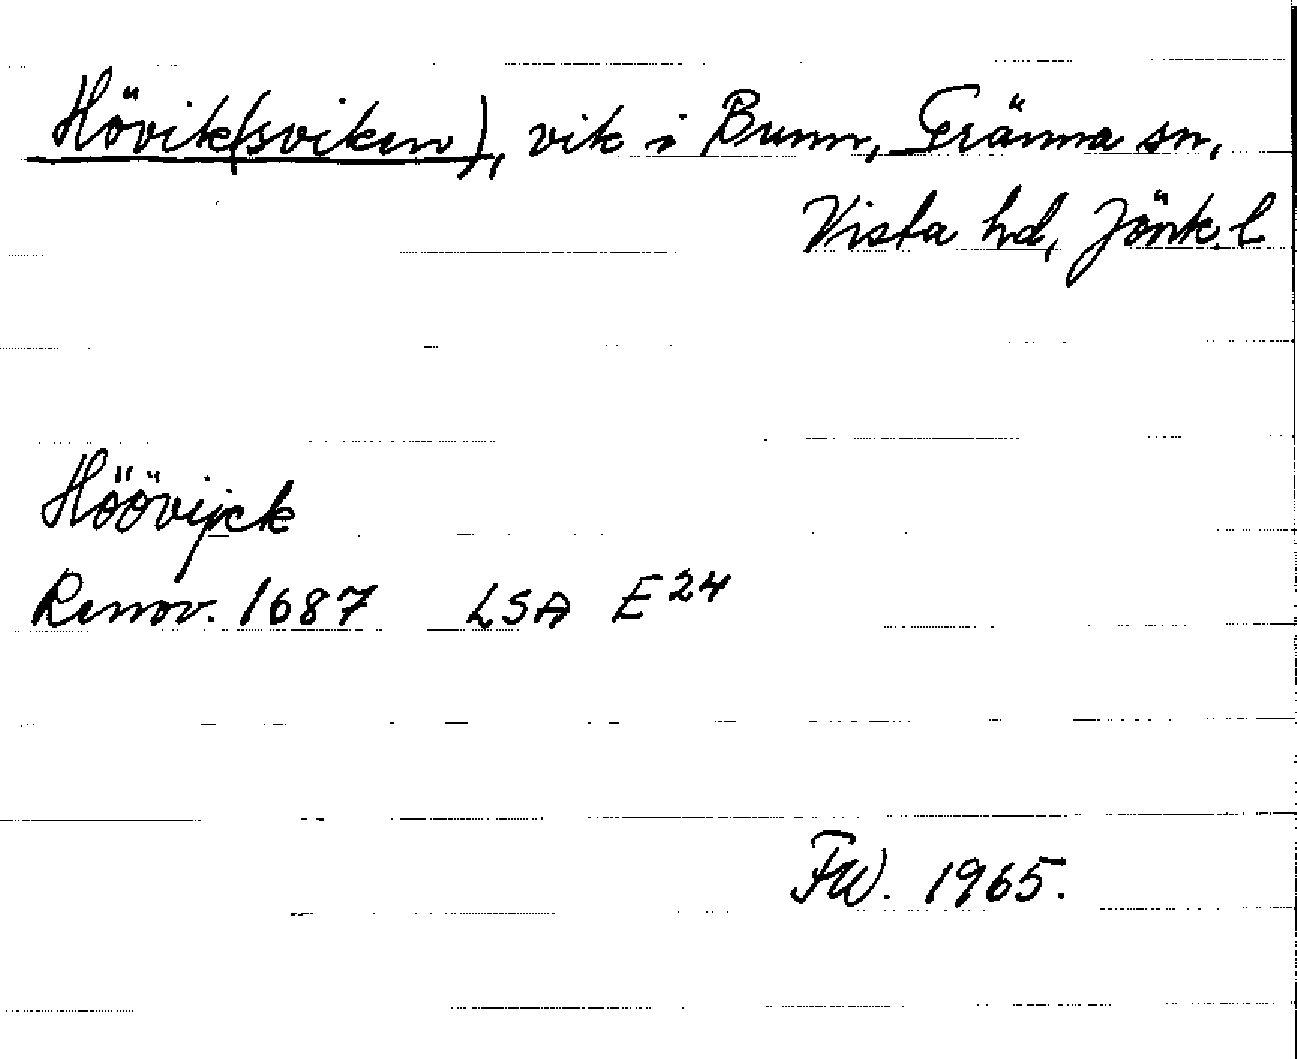 Hövik(sviken), vik i Bunn, Gränna sn,
Vista hd, Jönk. l
Höövijck
Renov. 1687 LSA E24
FW. 1965.